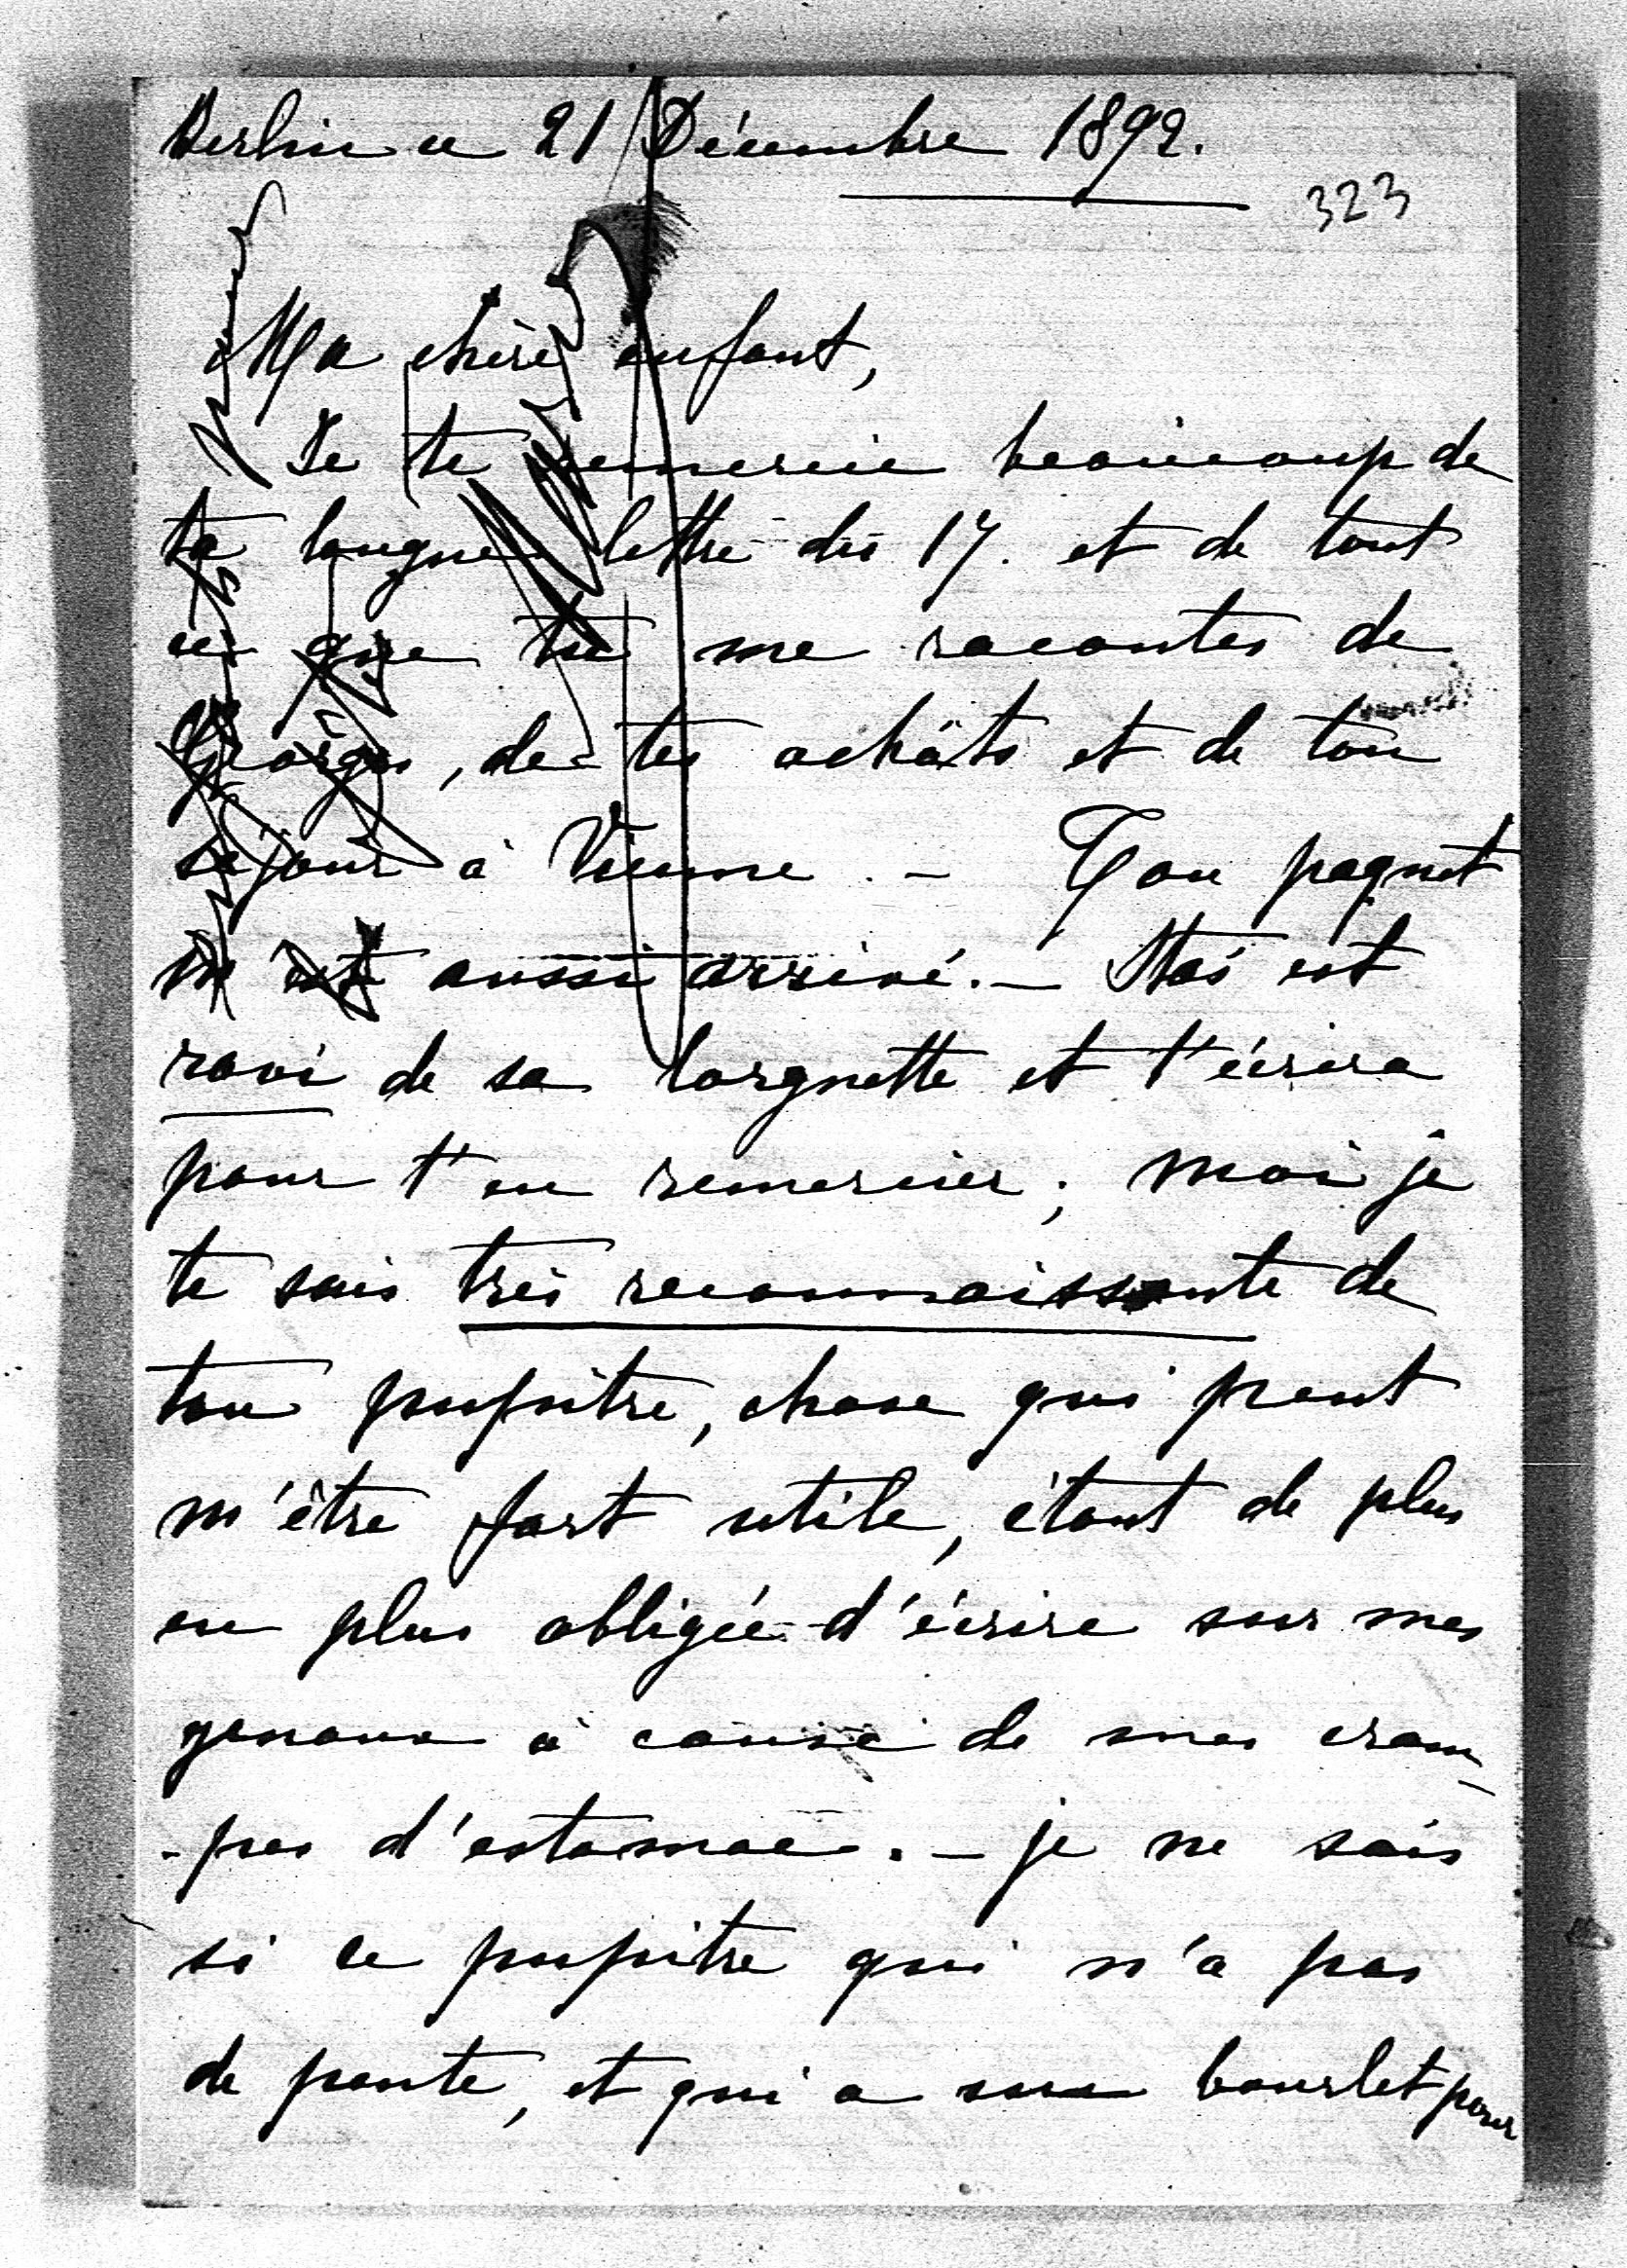 Berlin ce 21 Décembre 1892.
323
Ma chère enfant,
Je te remercie beaucoup de
ta longue lettre du 17. et de tout
ce que tu me racontes de
Georges, de tes achâts et de ton
séjour à Vienne. – Ton paquet
m'est aussi arrivé. – Stas est
ravi de sa lorgnette et t'écrira
pour t'en remercier; moi je
te suis très reconnaissante de
ton pupitre, chose qui peut
m'être fort utile, étant de plus
en plus obligée d'écrire sur mes
genoux à cause de mes cram-
-pes d'estomac. – je ne sais
si ce pupitre qui n'a pas
de pente, et qui a un bourlet pour